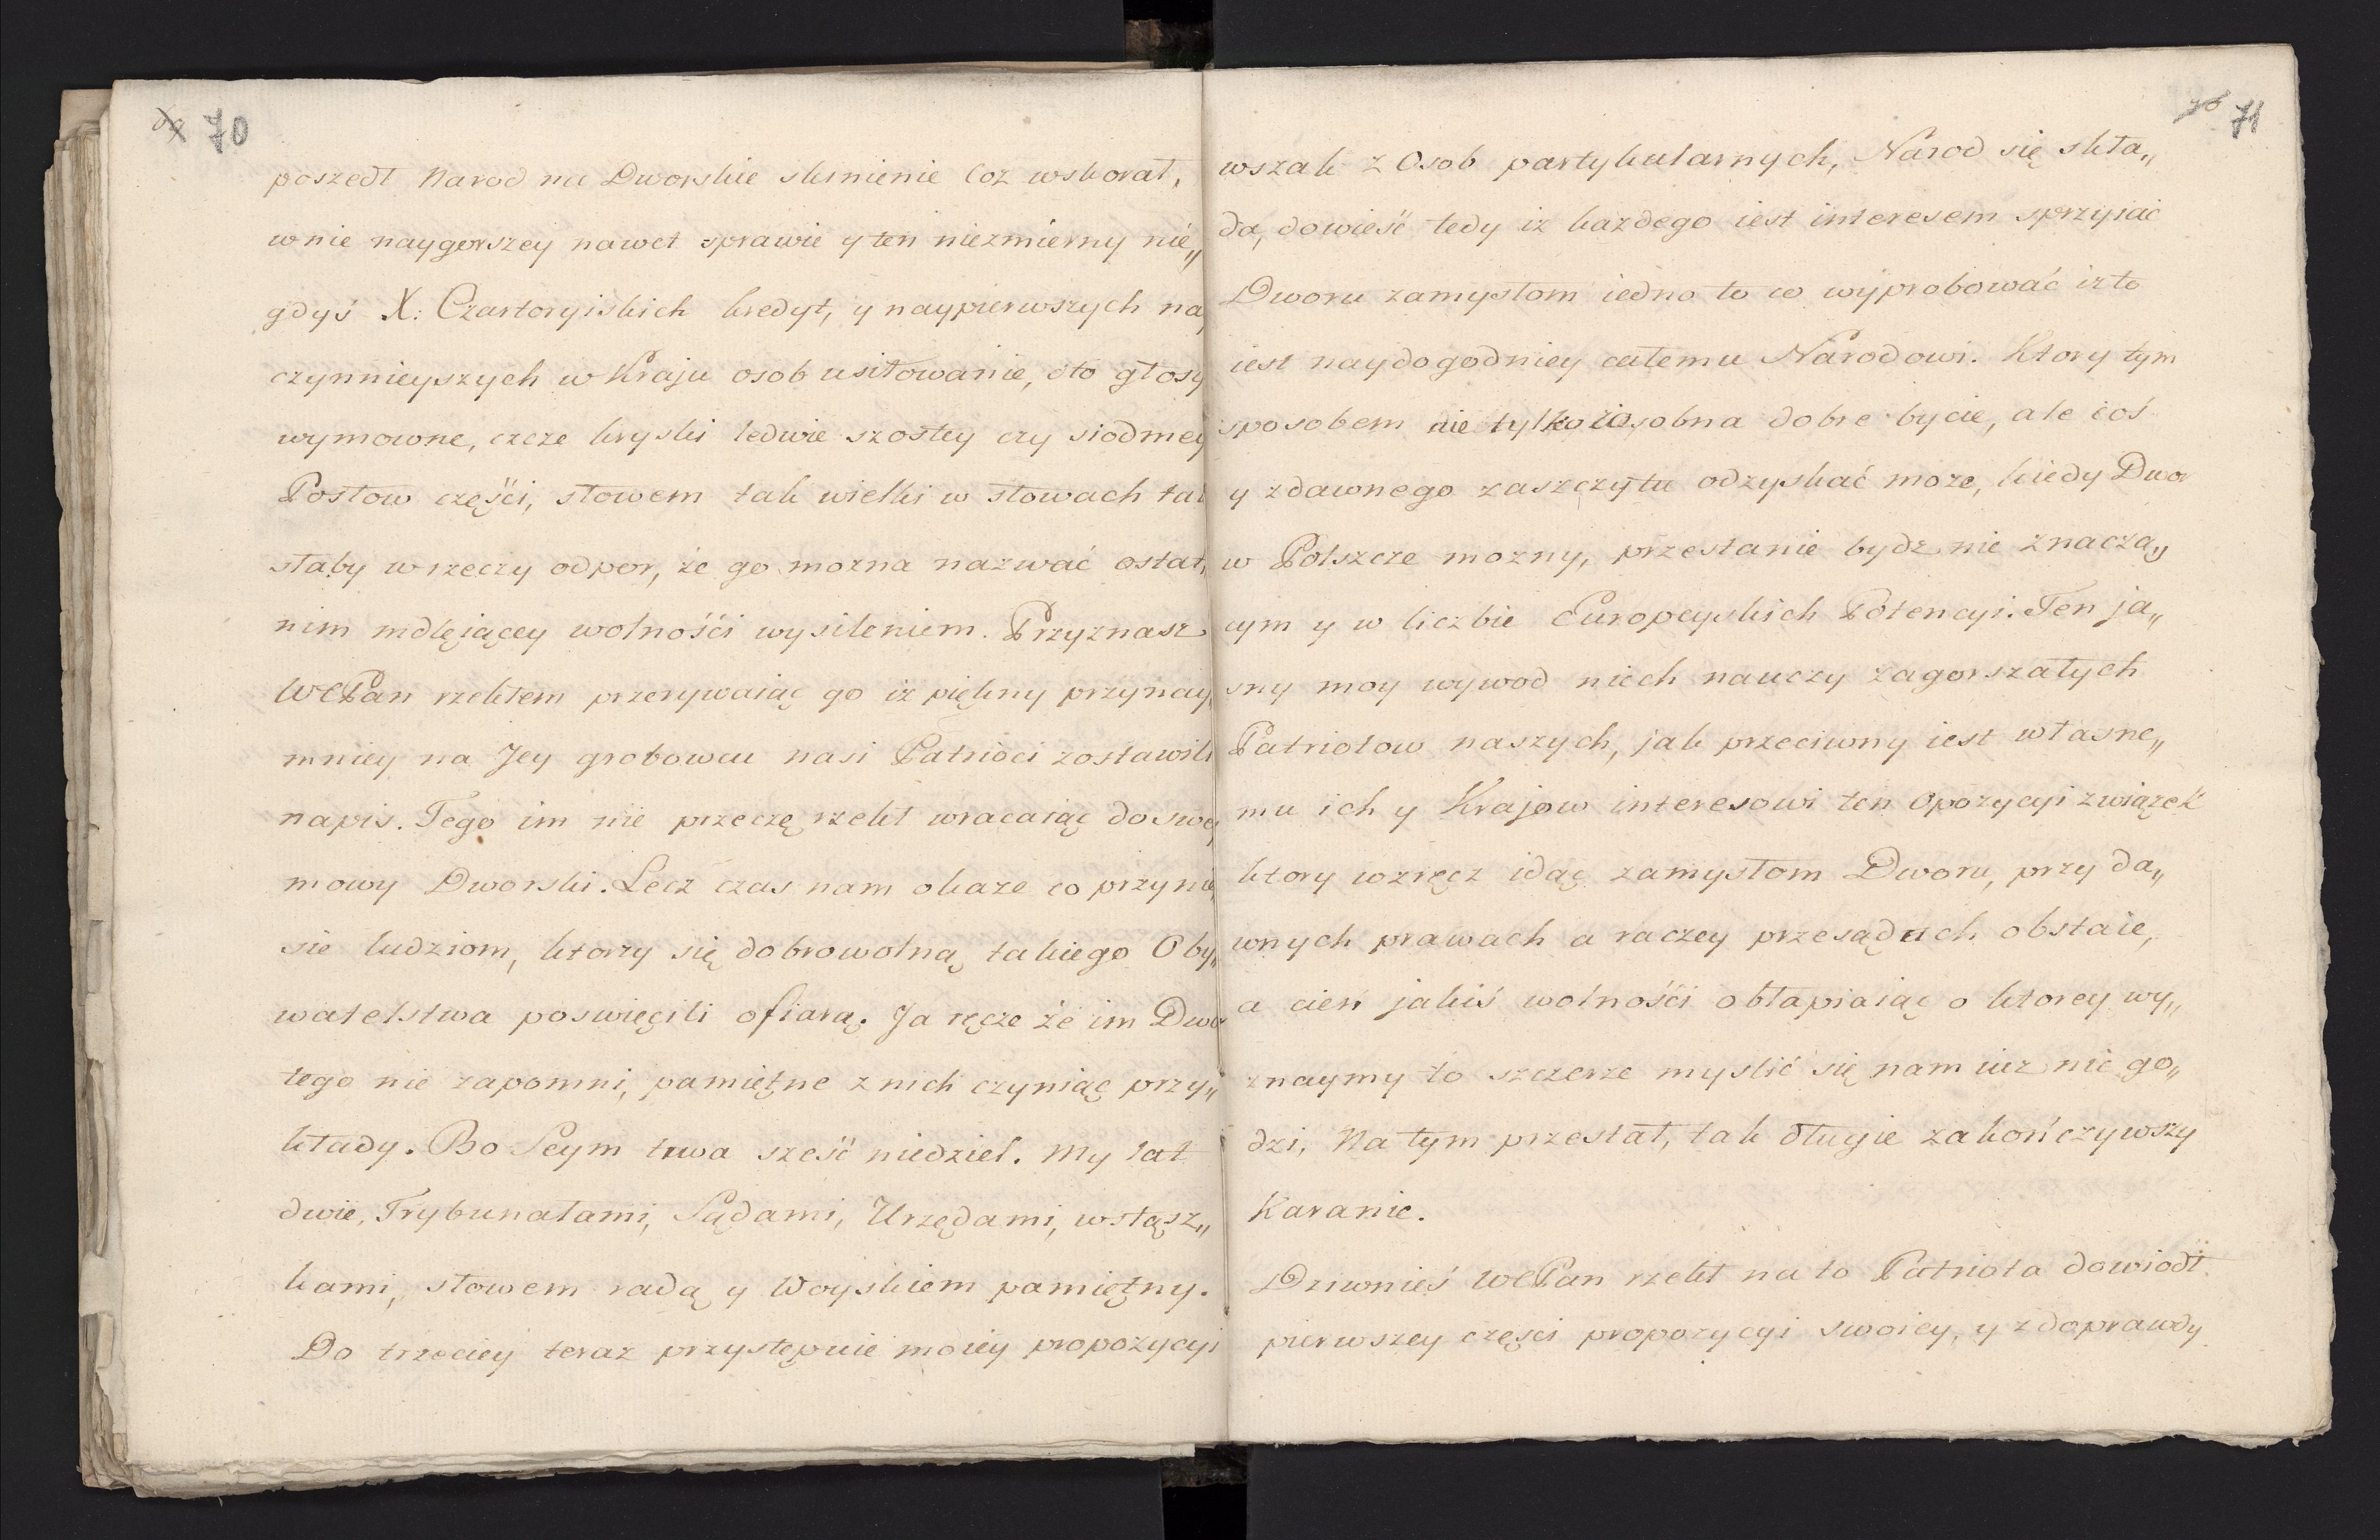 70
poszedł Narod na Dworskie skinienie Coż wskorał,
w nie naygorszey nawet sprawie y ten niezmierny nie„
gdyś X: Czartoryiskich kredyt, y naypierwszych nay
czynnieyszych w Kraju osob usiłowanie, oto głosy
wymowne, czcze kryski ledwie szostey czy siodmey
Posłow częśći, słowem tak wielki w słowach tak
słaby w rzeczy odpor, że go mozna nazwać ostat„
nim mdlęiącey wolnośći wysileniem. Przyznasz
WCPan rzekłem przerywaiąc go iz piękny przynay„
mniey na Jey grobowcu nasi Patrioci zostawili
napis. Tego im nie przeczę rzekł wracaiąc do swey
mowy Dworski. Lecz czas nam okaze co przynie„
sie ludziom, ktorzy się dobrowolną takiego Oby„
watelstwa poswięcili ofiarą. Ja ręcze że im Dwor
tego nie zapomni, pamiętne z nich czyniąc przy„
kłady. Bo Seym trwa sześć niedziel. My lat
dwie, Trybunałami, Sądami, Urzędami, wstąsz„
kami, słowem radą y Woyskiem pamiętny.
Do trzeciey teraz przystępuie moiey propozycyi
70 71
wszak z Osob partykularnych, Narod się skła„
da, dowieść tedy iz kazdego iest interesem sprzyiać
Dworu zamysłom iedno to co wyprobować iz to
iest naydogodniey całemu Narodowi. Ktory tym
sposobem nie tylko osobna dobre bycie, ale coś
y z dawnego zaszczytu odzyskać moze, kiedy Dwor
w Polszcze mozny, przestanie bydz nie znaczą„
cym y w liczbie Europeyskich Potencyi. Ten ja„
sny moy wywod niech nauczy zagorszałych
Patriotow naszych, jak przeciwny iest własne„
mu ich y Krajow interesowi ten Opozycyi związek
ktory wzręcz idąc zamysłom Dworu, przy da„
wnych prawach a raczey przesądach obstaie,
a cień jakiś wolnośći obłapiaiąc o ktorey wy„
znaymy to szczerze myslić się nam iuz nie go„
dzi. Na tym przestał, tak długie zakończywszy
Karanie.
Dziwnieś WCPan rzekł na to Patriota dowiodł
pierwszey częsci propozycyi swoiey, y z doprawdy